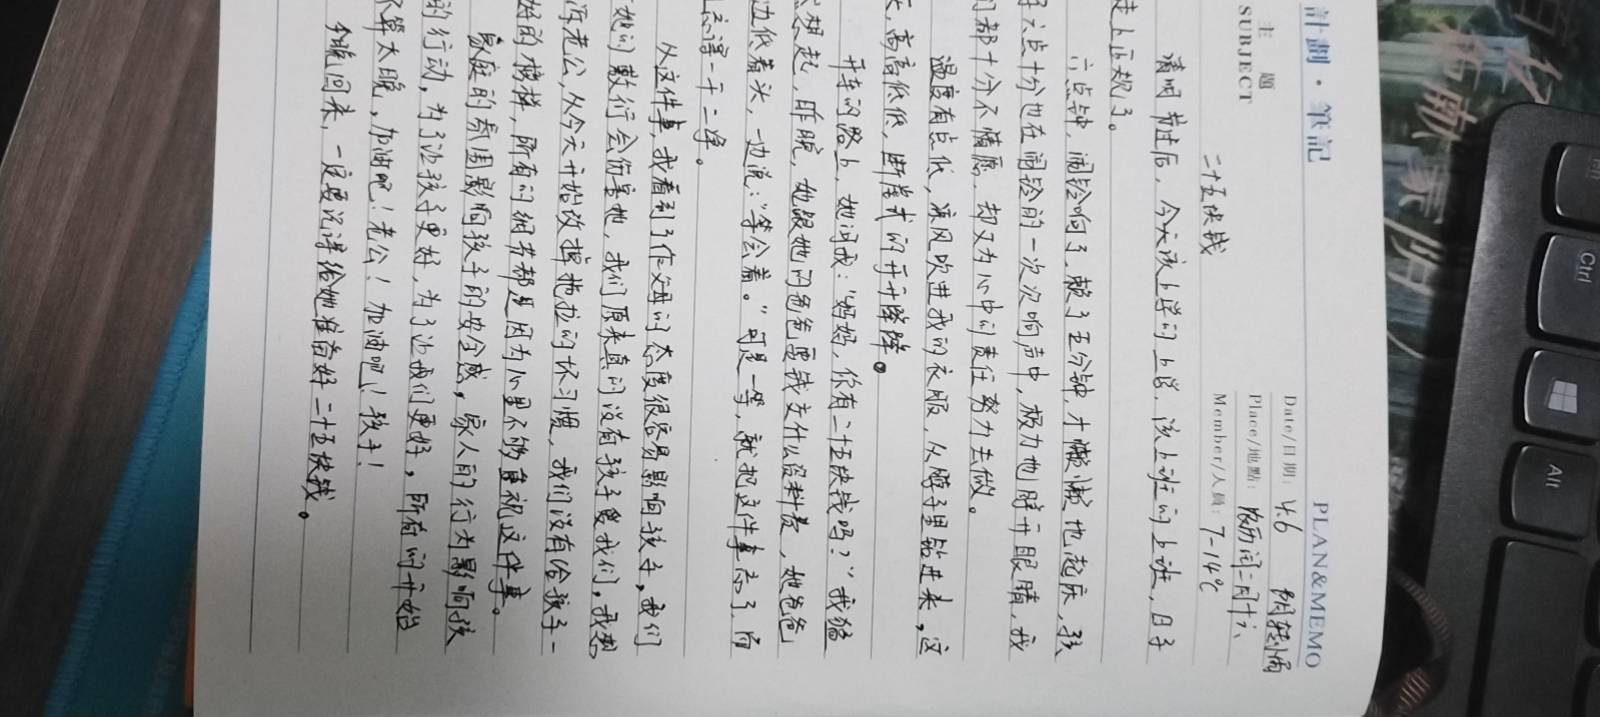 計劃·筆記
PLAN&MEMO
主題
SUBJECT
二十五块钱
Date/日期: 4.6 阴转小雨
Place/地點: 农历闰二月十六
Member/人員: 7-14℃
清明节过后，今天该上学的上学，该上班的上班，日子
走上正规了。
六点钟，闹铃响了，赖了五分钟，才懒懒地起床，孩
子六点十分也在闹铃的一次次响声中，极力地睁开眼睛，我
们都十分不情愿，却又为心中的责任努力去做。
温度有点低，凉风吹进我的衣服，从脖子里钻进来，这
天，高高低低，断崖式的升升降降。
开车的路上，她问我：“妈妈，你有二十五块钱吗？”我猛
想起，昨晚，她跟她的爸爸要钱交什么资料费，她爸爸
边低着头，一边说：“等会着。”可是一等，就把这件事忘了，而
忘得一干二净。
从这件事，我看到了作父母的态度很容易影响孩子，我们
她们敷衍会伤害她，我们原来真的没有孩子爱我们，我想
诉老公，从今天开始改掉拖拉的坏习惯，我们没有给孩子一
好的榜样，所有的细节都是因为心里不够重视这件事。
家庭的氛围影响孩子的安全感，家人的行为影响孩
的行动，为了让孩子更好，为了让我们更好，所有的开始
不算太晚，加油吧！老公！加油吧！孩子！
今晚回来，一定要记得给她准备好二十五块钱。
Ctrl
Alt